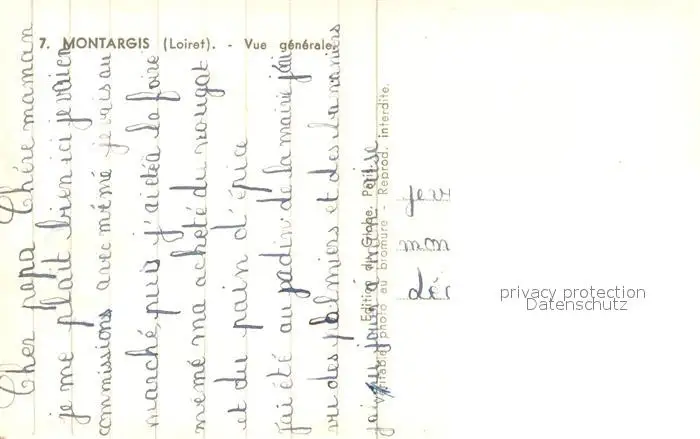 7. MONTARGIS (Loiret). - Vue générale.
Cher papa Chére maman
je me plait bien ici je vaien
commissions avec mémé je vais au
marché, puis j'ai étéà la foire
mémé ma acheté du nougat
et du pain d'épice
J'ai été au jadin de la mairie j'ai
vu des palmiers et des bananiers
j'ai pu joué à
Edition du Globe. Paris
Véritable photo au bromure - Reprod. interdite.
privacy protection
Datenschutz